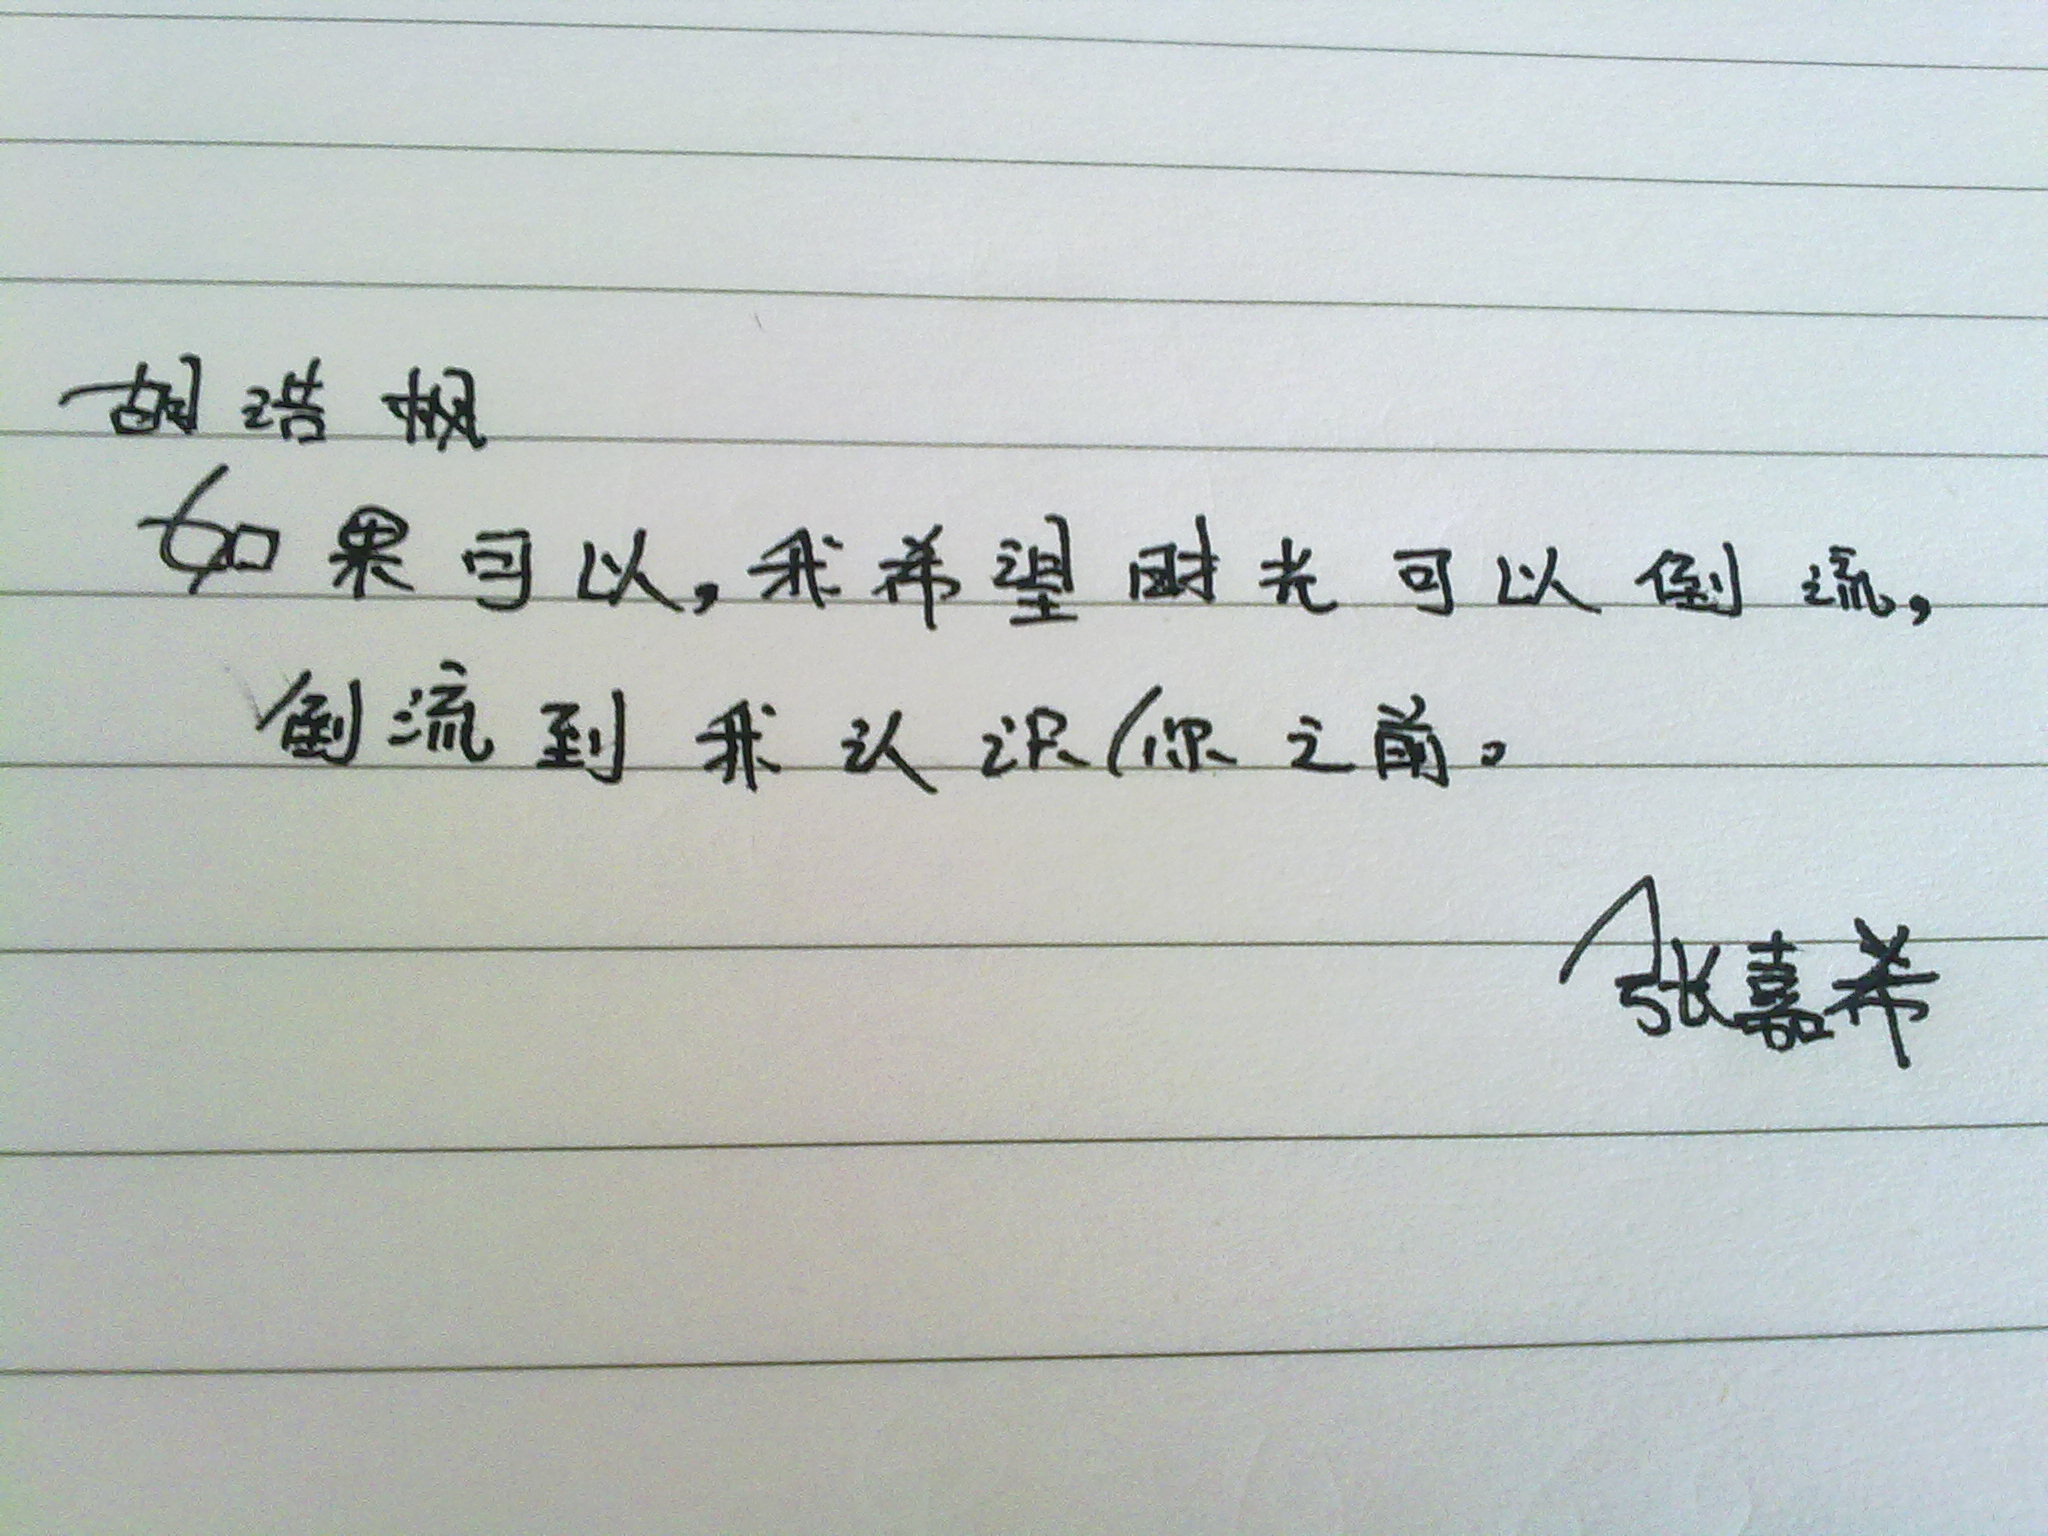 胡浩枫
如果可以,我希望时光可以倒流,
倒流到我认识你之前。
张嘉希